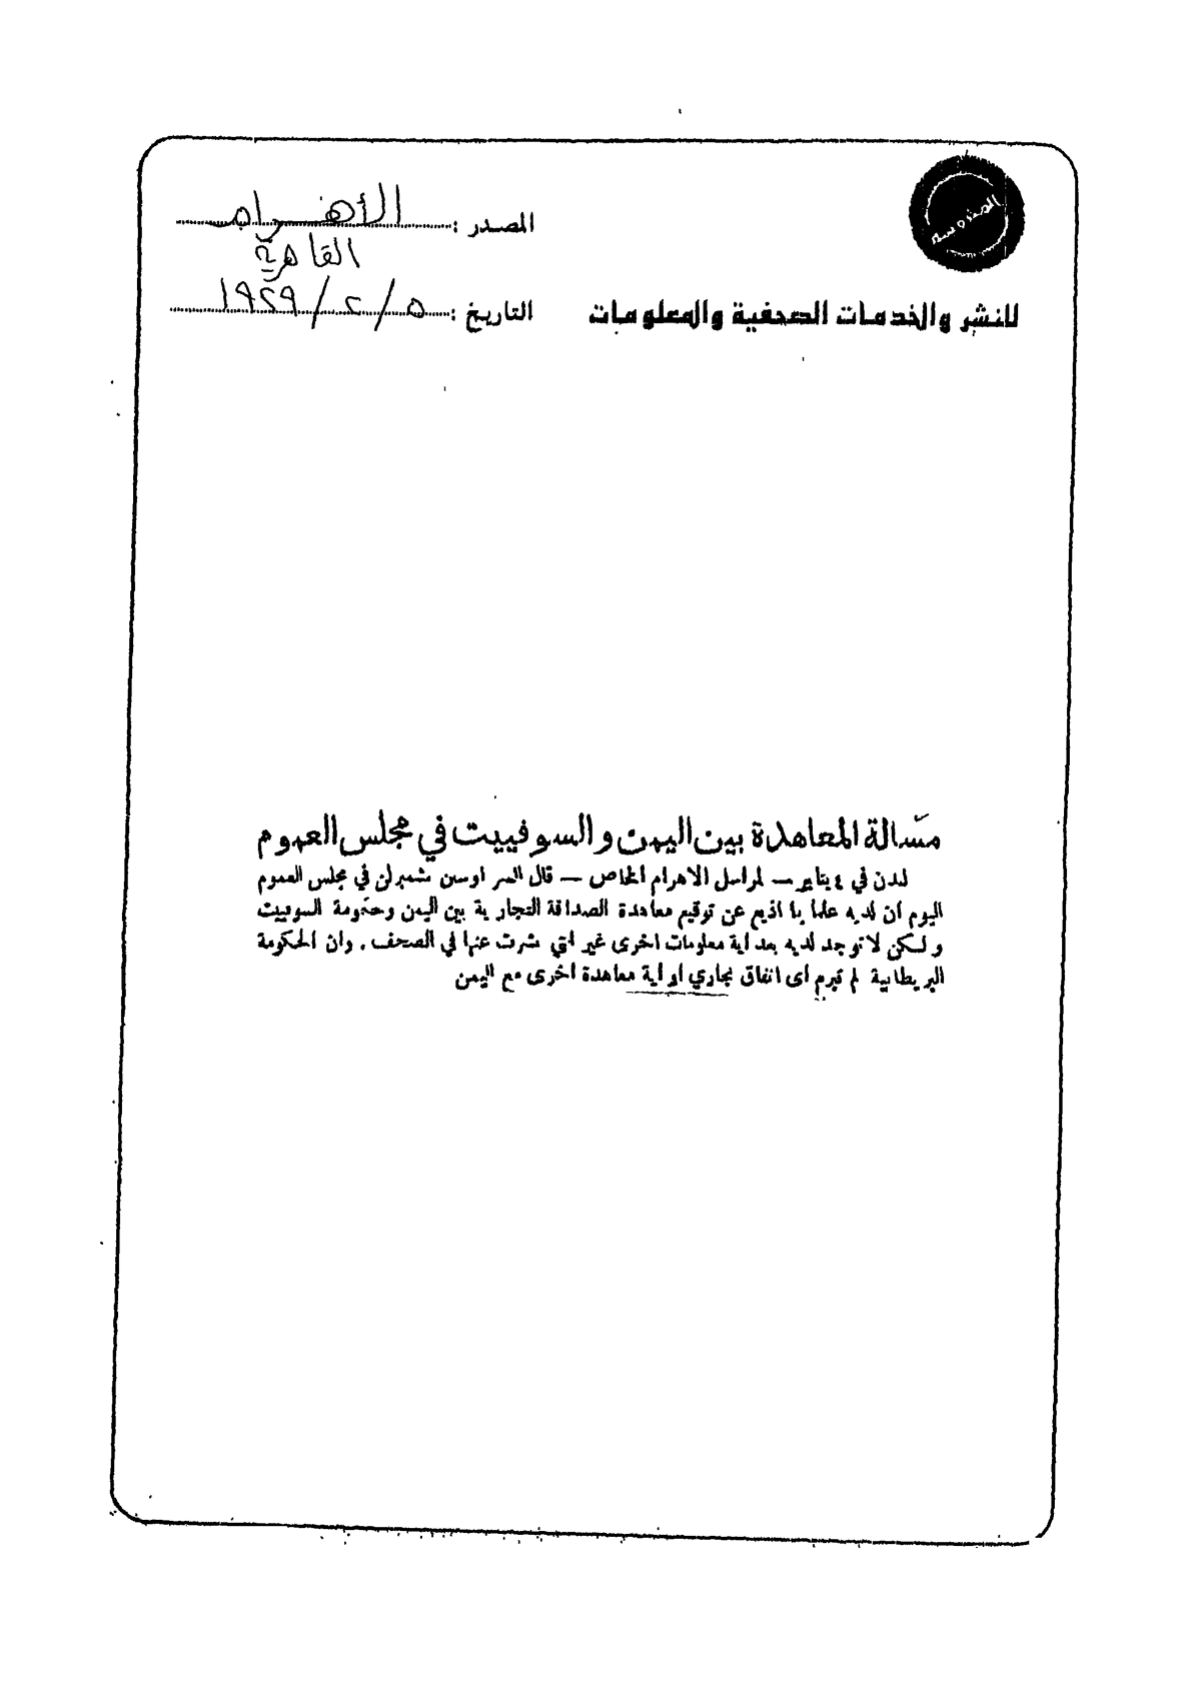 المصدر : الأهرام
القاهرة
التاريخ : ٥/٢/١٩٢٩
للنشر والخدمات الصحفية والمعلومات
مسالة المعاهدة بين اليمن والسوفييت في مجلس العموم
لندن في ٤ يناير — لمراسل الاهرام الخاص — قال السر اوستن شمبرلن في مجلس العموم
اليوم ان لديه علما بما اذيع عن توقيع معاهدة الصداقة التجارية بين اليمن وحكومة السوفييت
ولكن لا توجد لديه بعد اية معلومات اخرى غير التي نشرت عنها في الصحف . وان الحكومة
البريطانية لم تبرم اى اتفاق تجاري او اية معاهدة اخرى مع اليمن